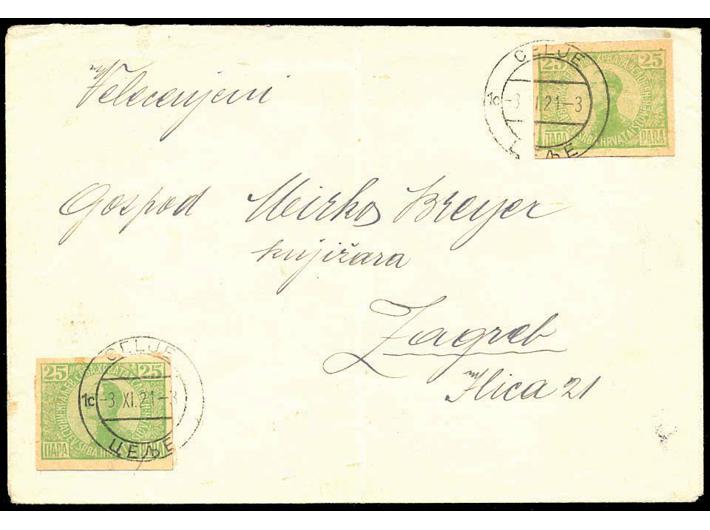 Velecenjeni
Gospod Mirko Breyer
knjižara
Zagreb
Ilica 21
25 25
ПАРА PARA
CELJE
1c -3 XI.21-3
ЦЕЉЕ
25 25
ПАРА
CELJE
1c -3 XI.21-3
ЦЕЉЕ